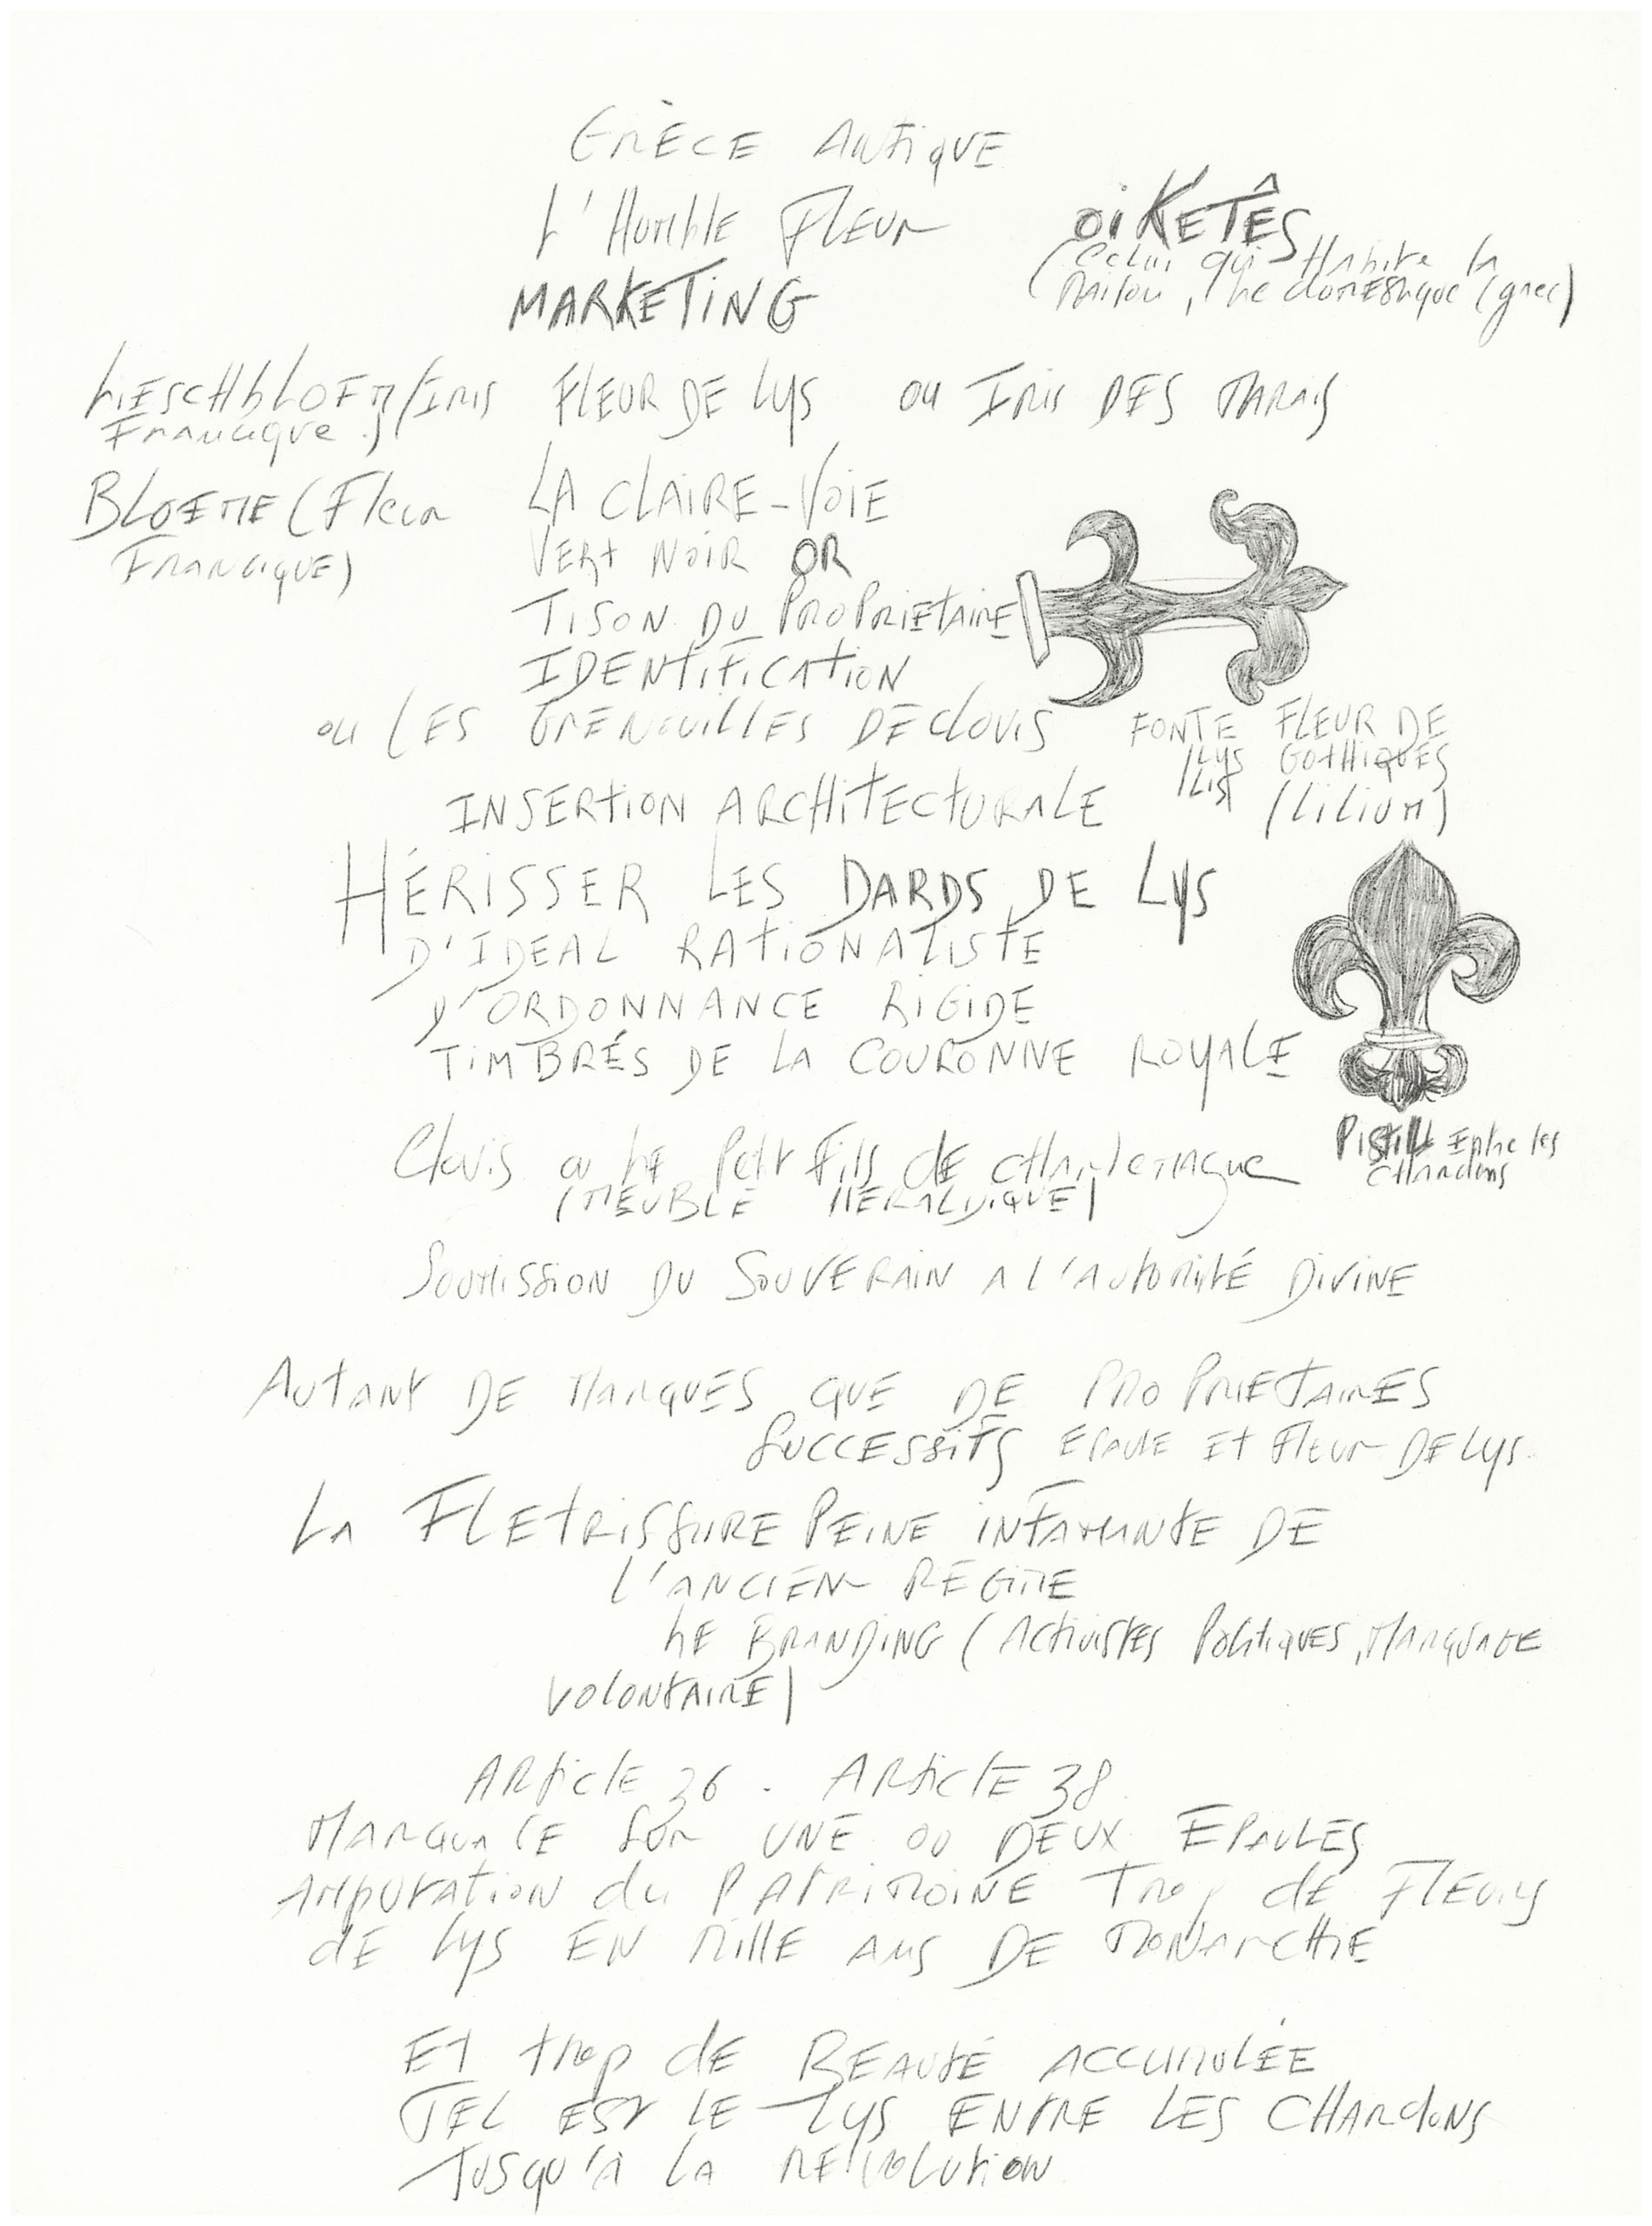 GRÈCE ANTIQUE
L'HUMBLE FLEUR
OIKETÊS
MARKETING
(Celui qui Habite la
Maison, Le domestique (grec)
LIESCHBLOEM/IRIS
Francique)
FLEUR DE LYS OU IRIS DES MARAIS
BLOEME (Fleur
FRANCIQUE)
LA CLAIRE-VOIE
VERT NOIR OR
TISON DU PROPRIETAIRE
IDENTIFICATION
ou LES GRENOUILLES DE CLOVIS
FONTE FLEUR DE
LYS GOTHIQUES
LIS (LILIUM)
INSERTION ARCHITECTURALE
HÉRISSER LES DARDS DE LYS
D'IDEAL RATIONALISTE
D'ORDONNANCE RIGIDE
TIMBRÉS DE LA COURONNE ROYALE
PISTIL Entre les
CHARdons
Clovis ou LE Petit Fils de CHARLEMAGNE
(MEUBLE HERALDIQUE)
SOUMISSION DU SOUVERAIN A L'AUTORITÉ DIVINE
AUTANT DE MARQUES QUE DE PROPRIETAIRES
SUCCESSIFS EPAULE ET FLEUR DE LYS.
LA FLETRISSURE PEINE INFAMANTE DE
L'ANCIEN REGIME
LE BRANDING (ACTIVISTES POLITIQUES, MARQUAGE
VOLONTAIRE)
ARTICLE 36 . ARTICLE 38
MARQUAGE SUR UNE OU DEUX EPAULES
AMPUTATION du PATRIMOINE Trop de FLEURS
DE LYS EN MILLE ANS DE MONARCHIE
ET trop de BEAUTÉ ACCUMULÉE
TEL EST LE LYS ENTRE LES CHARdONS
JUSQU'À LA REVOLUTION